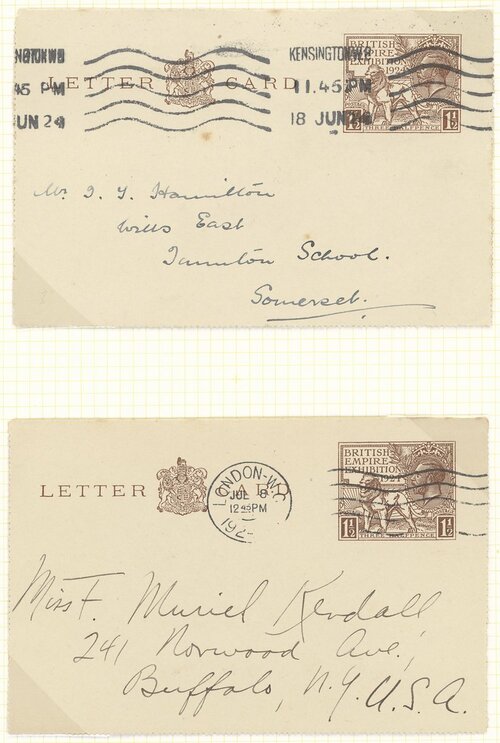 NGTON W8
45 PM
UN 24
LETTER CARD
KENSINGTON W8
11.45 PM
18 JUN 24
BRITISH
EMPIRE
EXHIBITION
1924
1½ THREE HALFPENCE 1½
Mr I. Y. Hamilton
Wills East
Taunton School.
Somerset.
LETTER CARD
LONDON-W.C.
JUL 8
12 45PM
192
BRITISH
EMPIRE
EXHIBITION
1924
1½ THREE HALFPENCE 1½
Miss F. Muriel Kendall
241 Norwood Ave.,
Buffalo, N.Y. U.S.A.